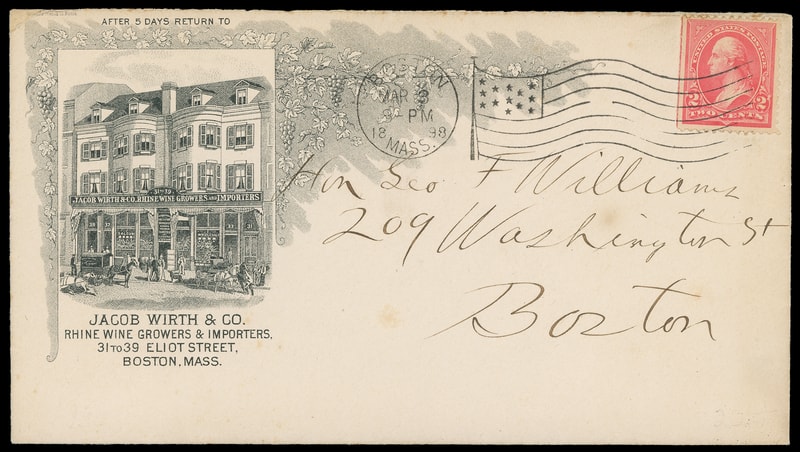 AFTER 5 DAYS RETURN TO
31 TO 39
JACOB WIRTH & CO. RHINE WINE GROWERS AND IMPORTERS
JACOB WIRTH & CO.
RHINE WINE GROWERS & IMPORTERS,
31 TO 39 ELIOT STREET,
BOSTON, MASS.
BOSTON
MAR
PM
18 98
MASS.
UNITED STATES POSTAGE
2 2
TWO CENTS
Hon Geo F Williams
209 Washington St
Boston